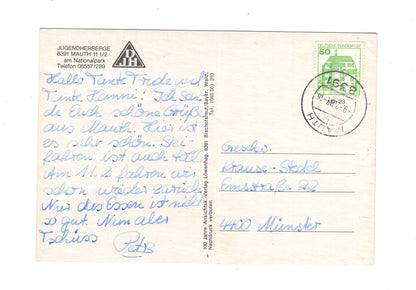 JUGENDHERBERGE
8391 MAUTH 11 1/2
am Nationalpark
Telefon 08557/289
DJH
Hallo Tante Trude und
Tante Hanni! Ich sen-
de Euch schöne Grüße
aus Mauth. Hier ist
es sehr schön. Ski-
fahren ist auch toll.
Am 11.2 fahren wir
schon wieder zurück.
Nur das Essen ist nicht
so gut. Nun aber
Tschüss
100 Jahre Ansichtsk.-Verlag Löwenhag, 8391 Bischofsreut/Bayer. Wald,
Nachdruck verboten
DEUTSCHE BUNDESPOST
50
8391
MAUTH
Geschw.
Krause-Stobl
Emsstraße 22
4400 Münster